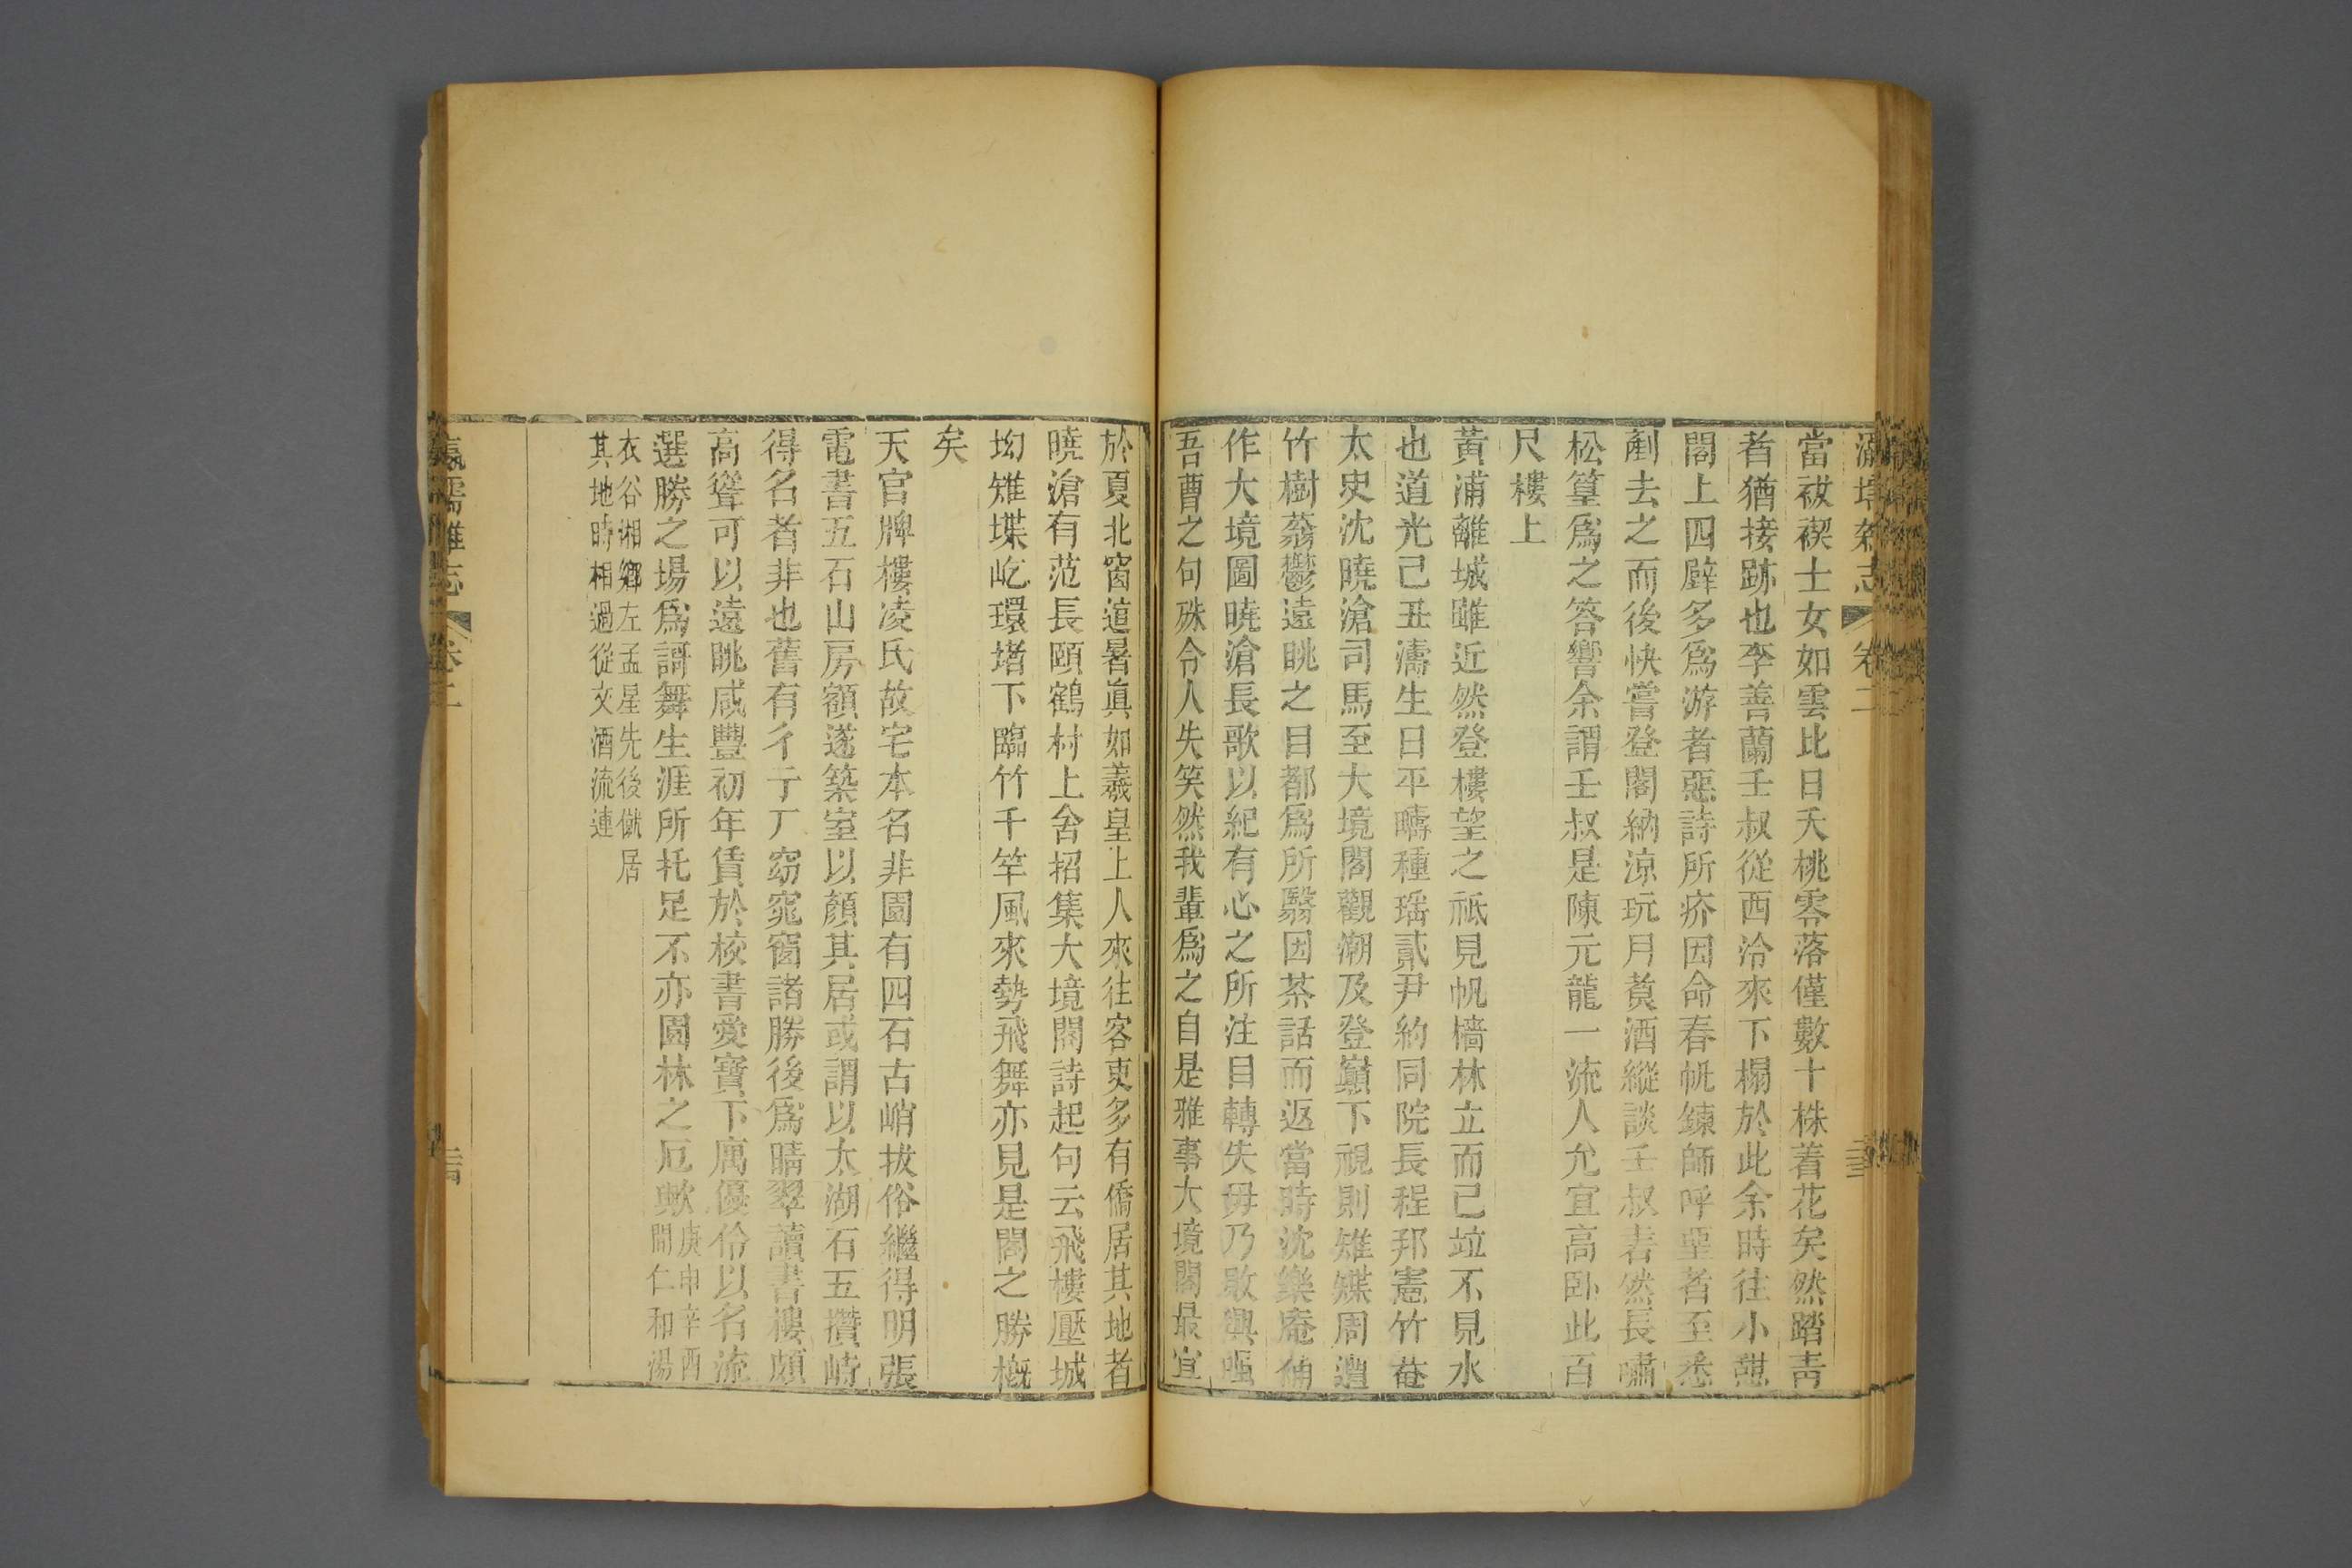 瀛壖雜志 卷二
當祓禊士女如雲比日夭桃零落僅數十株着花矣然踏靑
者猶接跡也李善蘭壬叔從西泠來下榻於此余時往小憇
閣上四壁多爲游者惡詩所疥因命春帆鍊師呼堊者至悉
剷去之而後快嘗登閣納涼玩月貰酒縱談壬叔砉然長嘯
松篁爲之答響余謂壬叔是陳元龍一流人允宜高卧此百
尺樓上
黃浦離城雖近然登樓望之祗見帆檣林立而已竝不見水
也道光己丑濤生日平疇種瑶貳尹約同院長程邦憲竹菴
太史沈曉滄司馬至大境閣觀潮及登巔下視則雉堞周遭
竹樹蓊鬱遠眺之目都爲所翳因茶話而返當時沈樂庵補
作大境圖曉滄長歌以紀有心之所注目轉失毋乃敗興嗤
吾曹之句殊令人失笑然我輩爲之自是雅事大境閣最宜
於夏北窗逭暑眞如羲皇上人來往客吏多有僑居其地者
曉滄有范長頤鶴村上舍招集大境閣詩起句云飛樓壓城
坳雉堞屹環堵下臨竹千竿風來勢飛舞亦見是閣之勝槪
矣
天官牌樓凌氏故宅本名非園有四石古峭拔俗繼得明張
電書五石山房額遂築室以顏其居或謂以太湖石五攢峙
得名者非也舊有彳亍厂窈窕窗諸勝後爲晴翠讀書樓頗
高聳可以遠眺咸豐初年賃於校書愛寶下寓優伶以名流
選勝之場爲謌舞生涯所托足不亦園林之厄歟庚申辛酉
間仁和湯
衣谷湘鄕左孟星先後僦居
其地時相過從文酒流連
瀛壖雜志 卷二